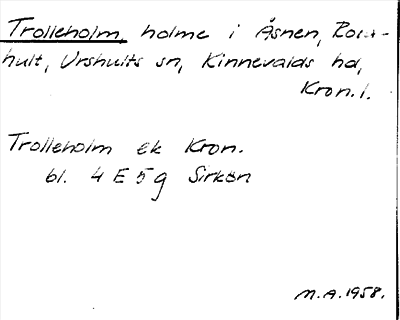 Trolleholm, holme i Åsnen,
hult, Urshults sn, Kinnevalds hd,
Kron. l.
Trolleholm Ek Kron.
bl. 4 E 5 g Sirkön
M.A. 1958.